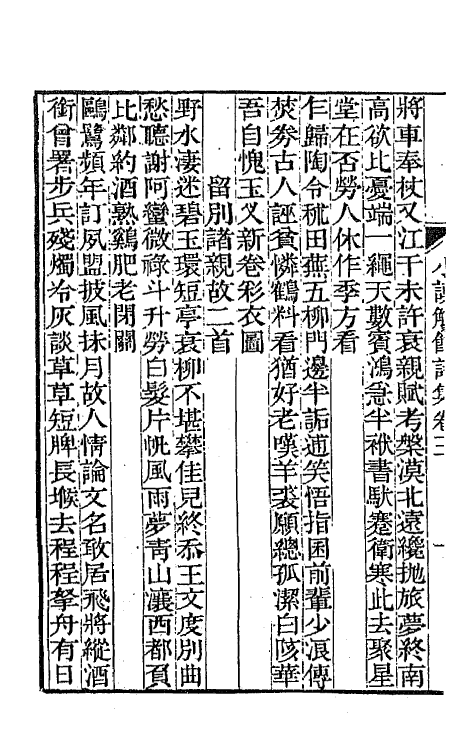 將車奉杖又江干未許衰親賦考槃漠北遠纔拋旅夢終南
高欲比憂端一繩天數賓鴻急半袱書馱蹇衛寒此去聚星
堂在否勞人休作季方看
乍歸陶令秫田蕪五柳門邊半詬逋笑悟指囷前輩少浪傳
焚券古人誣貧憐鶴料看猶好老嘆羊裘願總孤潔白陔華
吾自愧玉叉新卷彩衣圖
留別諸親故二首
野水淒迷碧玉環短亭衰柳不堪攀佳兒終忝王文度別曲
愁聽謝阿蠻微祿斗升勞白髮片帆風雨夢青山瀼西都負
比鄰約酒熟鷄肥老閉關
鷗鷺頻年訂夙盟披風抹月故人情論文名敢居飛將縱酒
銜曾署步兵殘燭冷灰談草草短牌長堠去程程拏舟有日